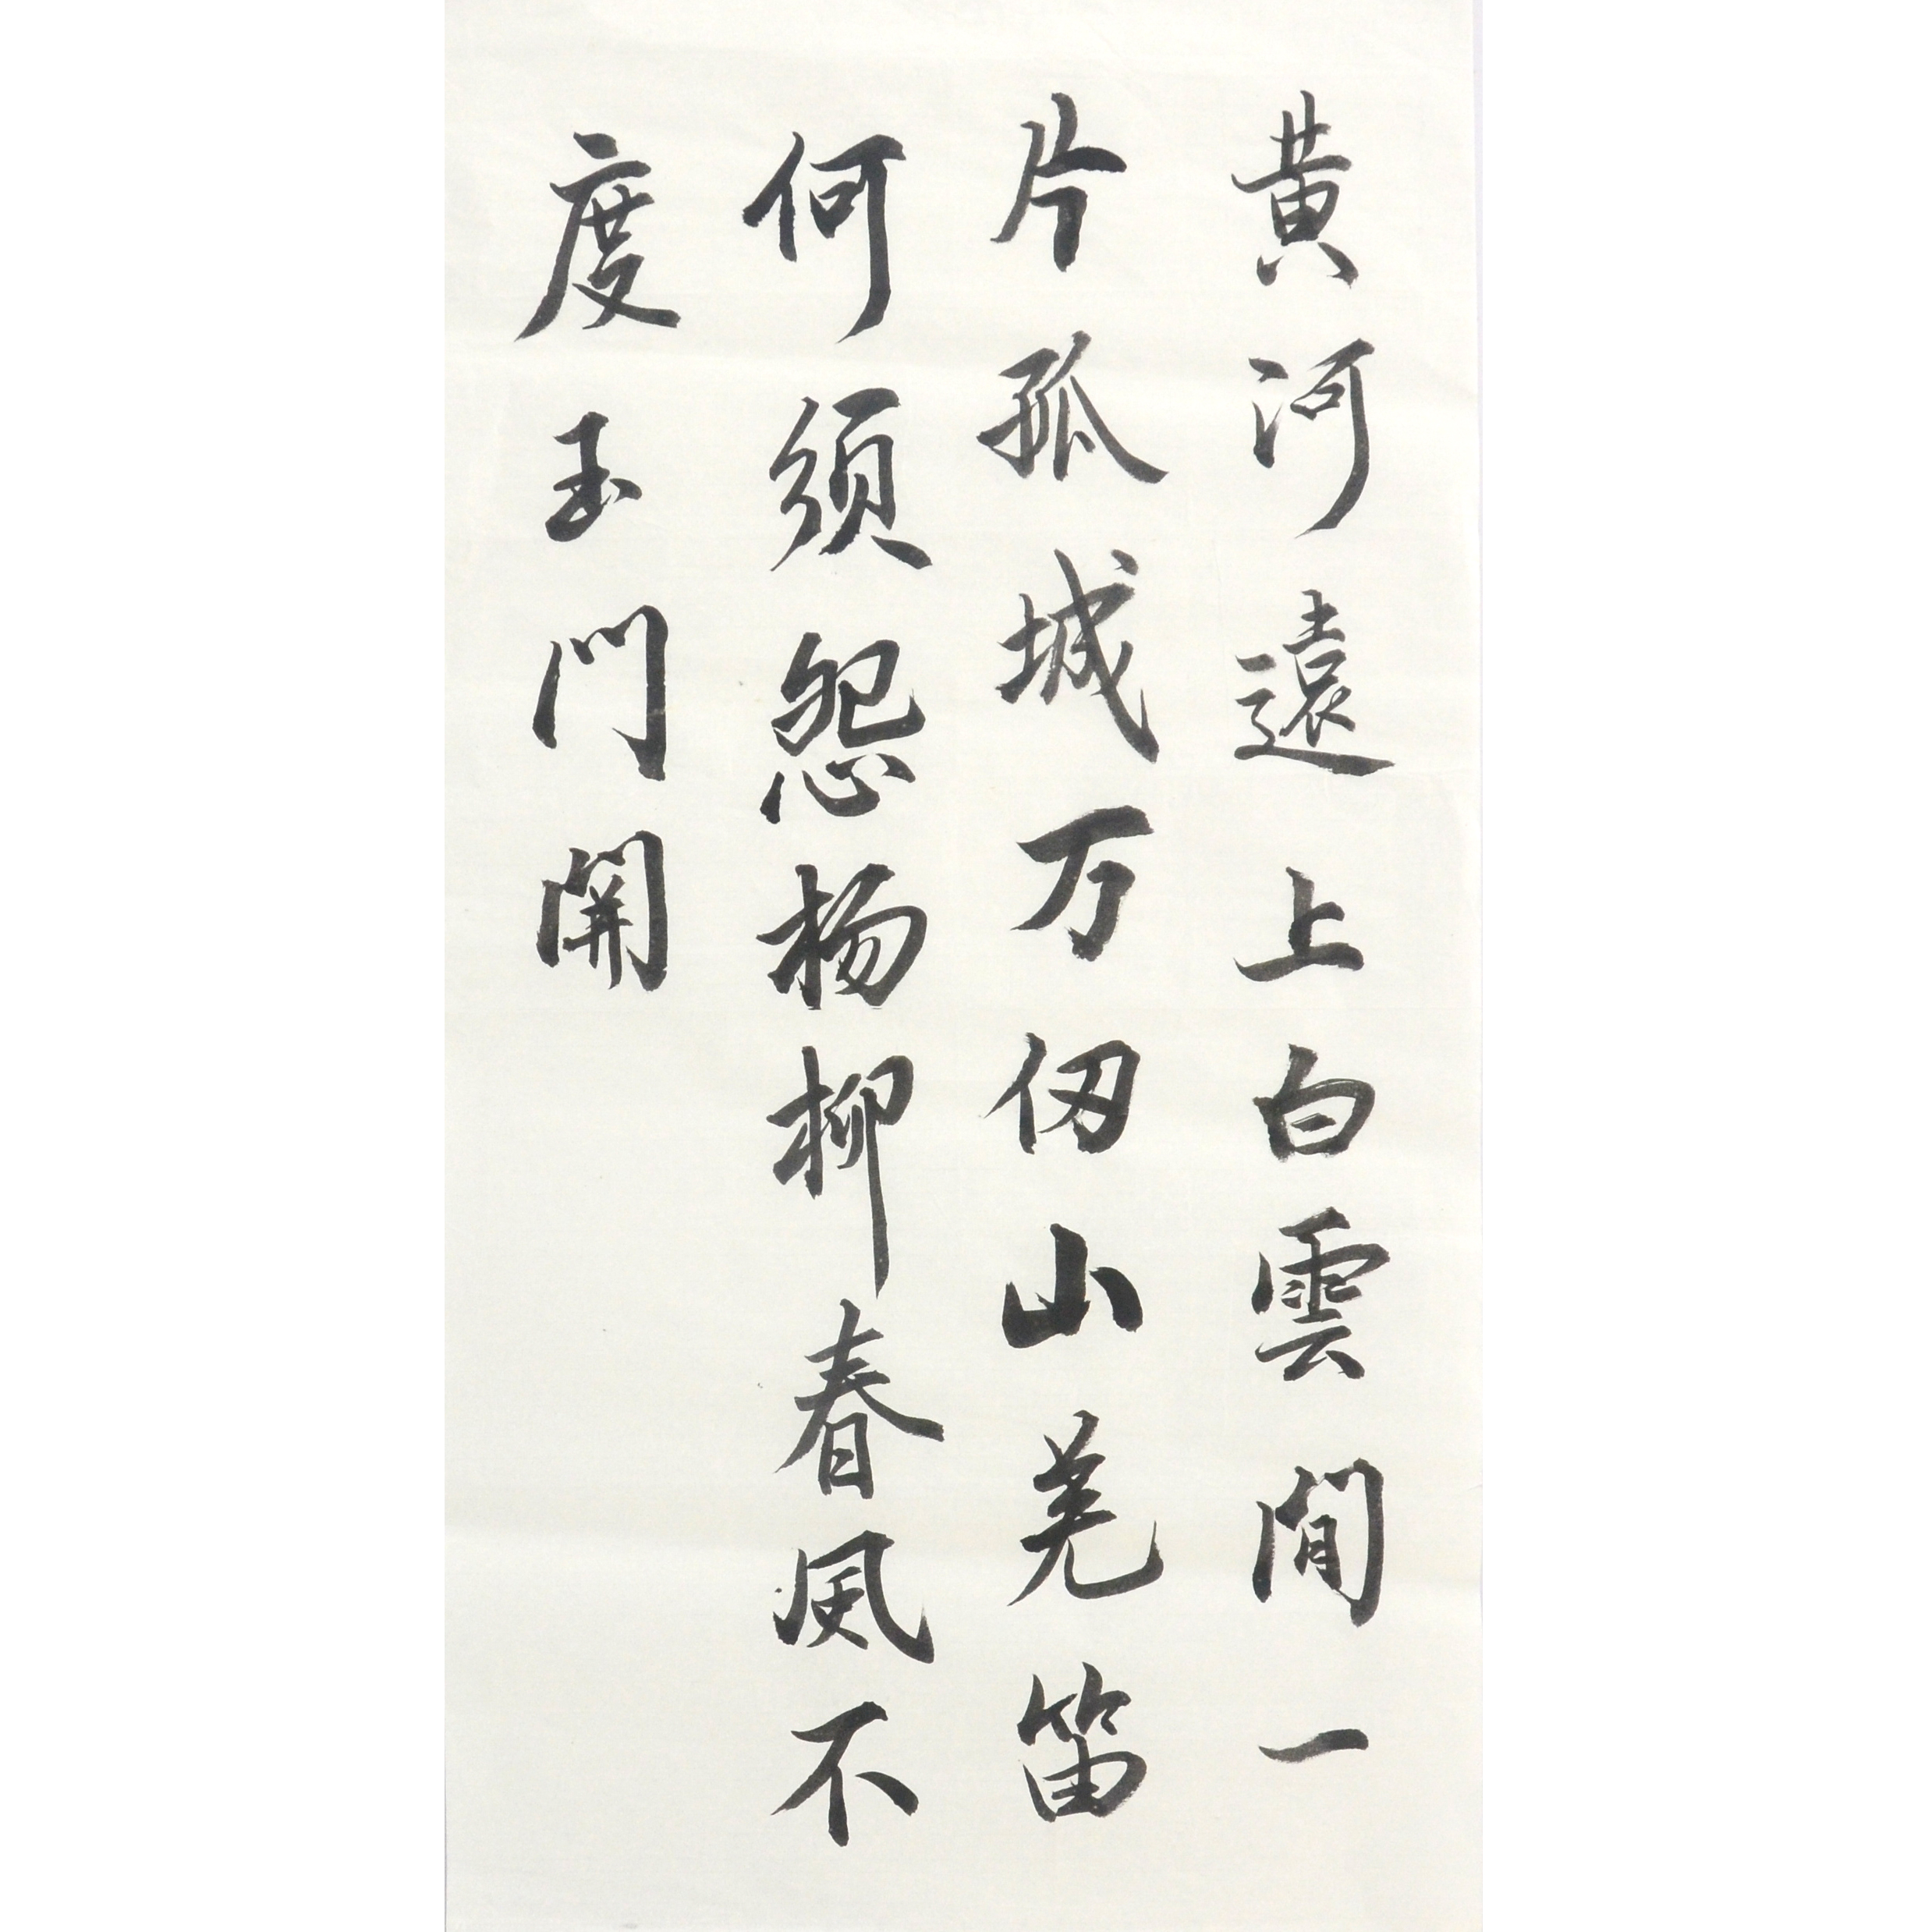 黄河遠上白雲間一
片孤城万仞山羌笛
何須怨杨柳春風不
度玉門開